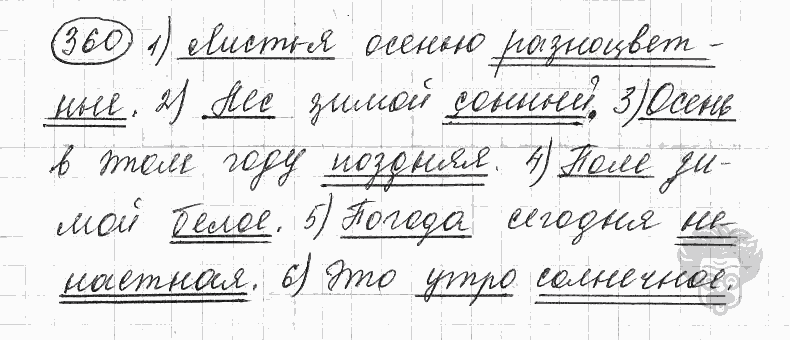 360 1) Листья осенью разноцвет-
ные. 2) Лес зимой сонный. 3) Осень
в этом году поздняя. 4) Поле зи-
мой белое. 5) Погода сегодня не-
настная. 6) Это утро солнечное.